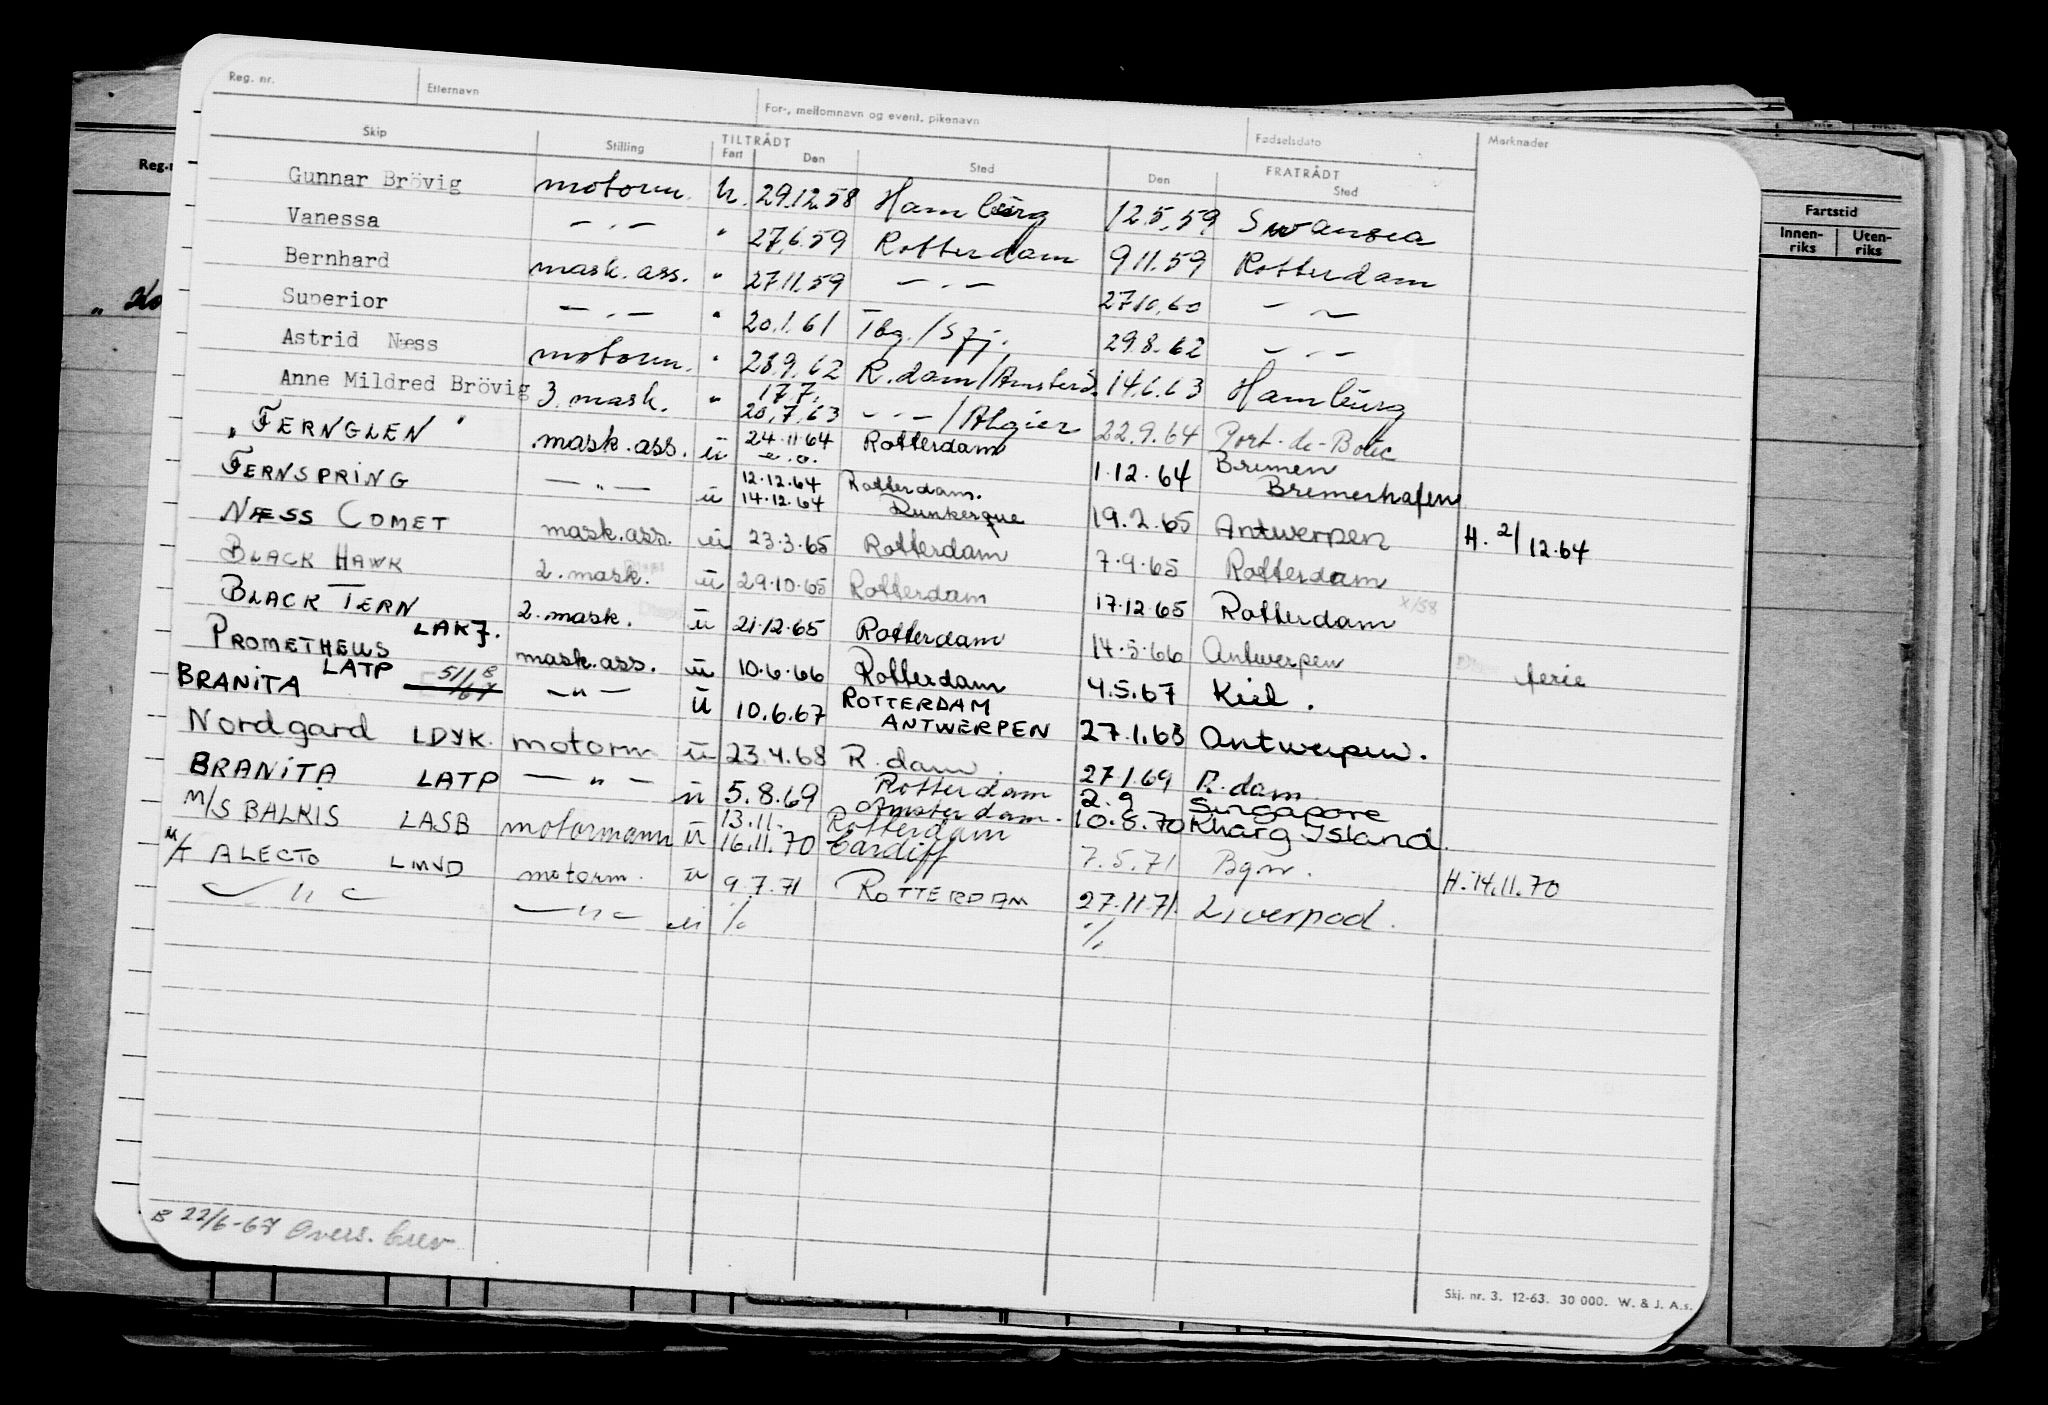 Reg. nr. Etternavn For-, mellomnavn og event. pikenavn Fødselsdato Merknader
Skip Stilling TILTRÅDT Fart Den Sted FRATRÅDT Den Sted
Gunnar Brövig motorm. u. 29.12.58 Hamburg 12.5.59 Swansea
Vanessa — . — " 27.6.59 Rotterdam 9.11.59 Rotterdam
Bernhard mask. ass. " 27.11.59 — . — 27.10.60 — . —
Superior — . — " 20.1.61 Tbg./Sfj. 29.8.62 — . —
Astrid Næss motorm. " 28.9.62 R.dam/Amsterd. 14.6.63 Hamburg
Anne Mildred Brövig 3. mask. " 17.7. 20.7.63 — . — /Algier 22.9.64 Port-de-Bouc
"FERNGLEN" mask. ass. u 24.11.64 Rotterdam 1.12.64 Bremen Bremerhafen
FERNSPRING — " — u 12.12.64 14.12.64 Rotterdam. Dunkerque 19.2.65 Antwerpen H. 2/12.64
NÆSS COMET mask. ass. u 23.3.65 Rotterdam 7.9.65 Rotterdam
BLACK HAWK 2. mask. u 29.10.65 Rotterdam 17.12.65 Rotterdam
BLACK TERN 2. mask. u 21.12.65 Rotterdam 14.5.66 Antwerpen ferie
PROMETHEUS LAKJ. mask. ass. u 10.6.66 Rotterdam 4.5.67 Kiel.
BRANITA LATP — " — u 10.6.67 ROTTERDAM ANTWERPEN 27.1.68 Antwerpen.
Nordgard LDYK. motorm u 23.4.68 R.dam. 27.1.69 R.dam
BRANITA LATP — " — u 5.8.69 Rotterdam Amsterdam. 2.9 10.8.70 Singapore Kharg Island.
M/S BALKIS LASB motormann u 13.11. 16.11.70 Rotterdam Cardiff 7.5.71 Bgn. H. 14.11.70
M/T ALECTO LMVD motorm. u 9.7.71 ROTTERDAM 27.11.71. Liverpool.
— " — — " — u % %
B 22/6-67 Overs. brev
Skj. nr. 3. 12-63. 30 000. W. & J. A.s.
Fartstid
Innenriks Utenriks